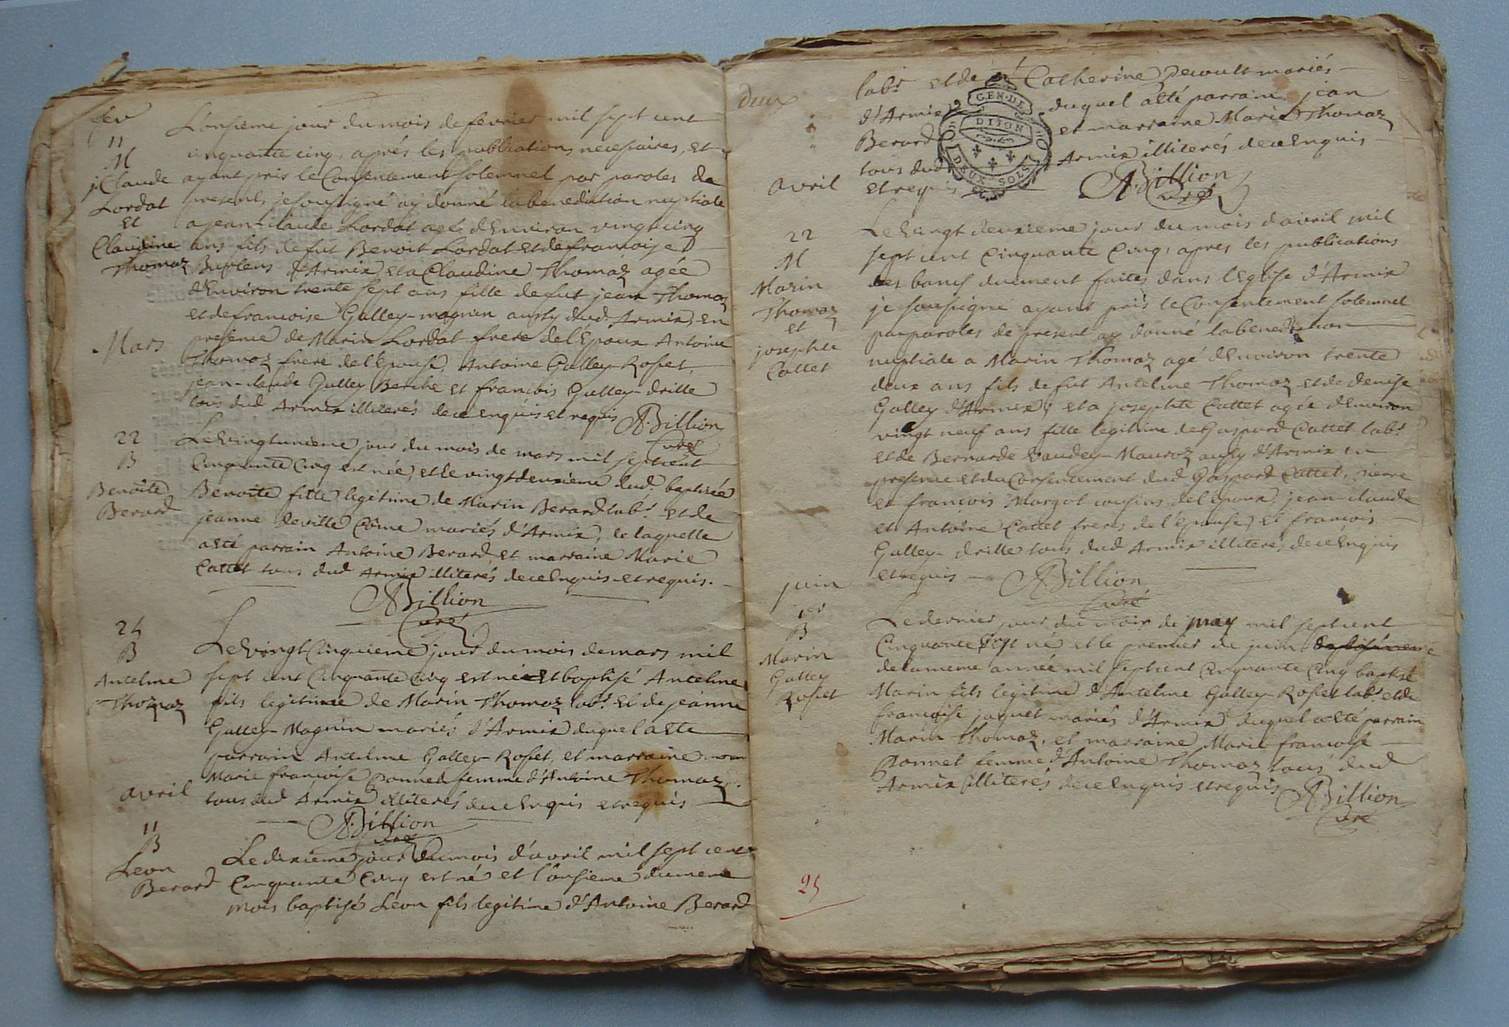 fev
11
M
jClaude
Lordat
et
Claudine
Thomaz
L'onsieme jour du mois de fevrier mil sept cent
cinquante cinq, aprés les publications necessaires, et
ayant pris le Consentement solemnel par paroles de
present, je soussigné ay donné la benediction nuptiale
a jean claude Lordat agé d'Environ vingt cinq
ans fils de fut Benoit Lordat et de francoise
d'Armix, et a Claudine Thomaz agée
d'Environ trente sept ans fille de fut jean Thomaz
et de francoise Galley-magnin aussy dud Armix, en
presence de Marin Lordat frere de l'Epoux Antoine
Thomaz frere de l'Epouse, Antoine Galley Roset,
jean-claude Galley Berthe et francois Galley-drille
tous dud Armix illiterés de ce Enquis et requis ABillion
curé
Mars
22
B
Benoite
Berard
Le Vingtunieme jour du mois de mars mil septcent
Cinquante Cinq est née, et le vingtdeuxieme dud baptisée
Benoite fille legitime de Marin Berard labr et de
jeanne deville Cème mariés d'Armix, de laquelle
a eté parrain Antoine Berard, et marraine Marie
Cattet tous dud Armix illiterés de ce Enquis et requis.
ABillion
curé
25
B
Anteline
Thomaz
Le Vingt Cinquieme jour du mois de mars mil
sept cent Cinquante Cinq est né et baptisé Antelme
fils legitime de Marin Thomaz labr et de jeanne
Galley Magnin mariés d'Armix duquel a eté
parrain Antelme Galley-Roset, et marraine
Marie francoise Ponnet femme d'Antoine Thomaz.
tous dud Armix illiterés de ce Enquis et requis
ABillion
curé
avril
11
B
Leon
Berard
Le dixieme jour du mois d'avril mil sept cent
Cinquante Cinq est né et l'onsieme du meme
mois baptisé Léon fils legitime d'Antoine Berard
deux
labr et de Catherine mariés
d'Armix duquel a eté parrain jean
Berard et marraine Marie Thomaz
tous dud Armix illiterés de ce Enquis
et requis ABillion
curé
GEN. DE
DIJON
DEUX. SOLS
avril
22
M
Marin
Thomaz
et
josephte
Cattet
Le Vingt deuxieme jour du mois d'avril mil
sept cent Cinquante Cinq, apres les publications
des bancs duement faites dans l'Eglise d'Armix
je soussigné ayant pris le Consentement solemnel
par paroles de present ay donné la benediction
nuptiale a Marin Thomaz agé d'Environ trente
deux ans fils de fut Antelme Thomaz et de denise
Galley d'Armix, et a josephte Cattet agée d'Environ
vingt neuf ans fille legitime de Gaspard Cattet labr
et de Bernarde Vaudey-Mauroz aussy d'Armix en
presence et du Consentement dud Gaspard Cattet, pierre
et francois Margot cousins de l'Epoux, jean-claude
et Antoine Cattet freres de l'Epouse, et francois
Galley-drille tous dud Armix illiterés de ce Enquis
et requis ABillion
curé
juin
1er
B
Marin
Galley
Roset
Le dernier jour du mois de may mil septcent
Cinquante Cinq est né et le premier de juin
de la meme année mil septcent Cinquante Cinq baptisé
Marin fils legitime d'Antelme Galley-Roset labr et de
francoise juquet mariés d'Armix duquel a eté parrain
Marin Thomaz, et marraine Marie francoise
Ponnet femme d'Antoine Thomaz tous dud
Armix illiterés de ce Enquis et requis ABillion
curé
25